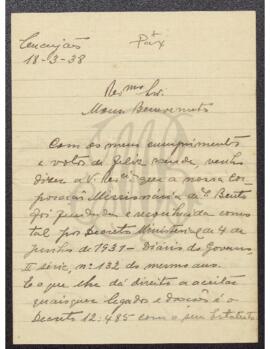 Cucujães
18-3-38
Pax
Rev.mo Sr.
Mons. Benevenuto
Com os meus cumprimentos
e votos de feliz venho
dizer a V. Rev.cia que a nossa Cor-
poração Missionária de S. Bento
foi fundada e reconhecida como
tal por Decreto Ministerial de 4 de
Junho de 1931 - Diário do Governo
II série, n.º 132 do mesmo ano.
E o que lhe dá direito a aceitar
quaisquer legados e doações é o
Decreto 12:485 com o seu Estatuto